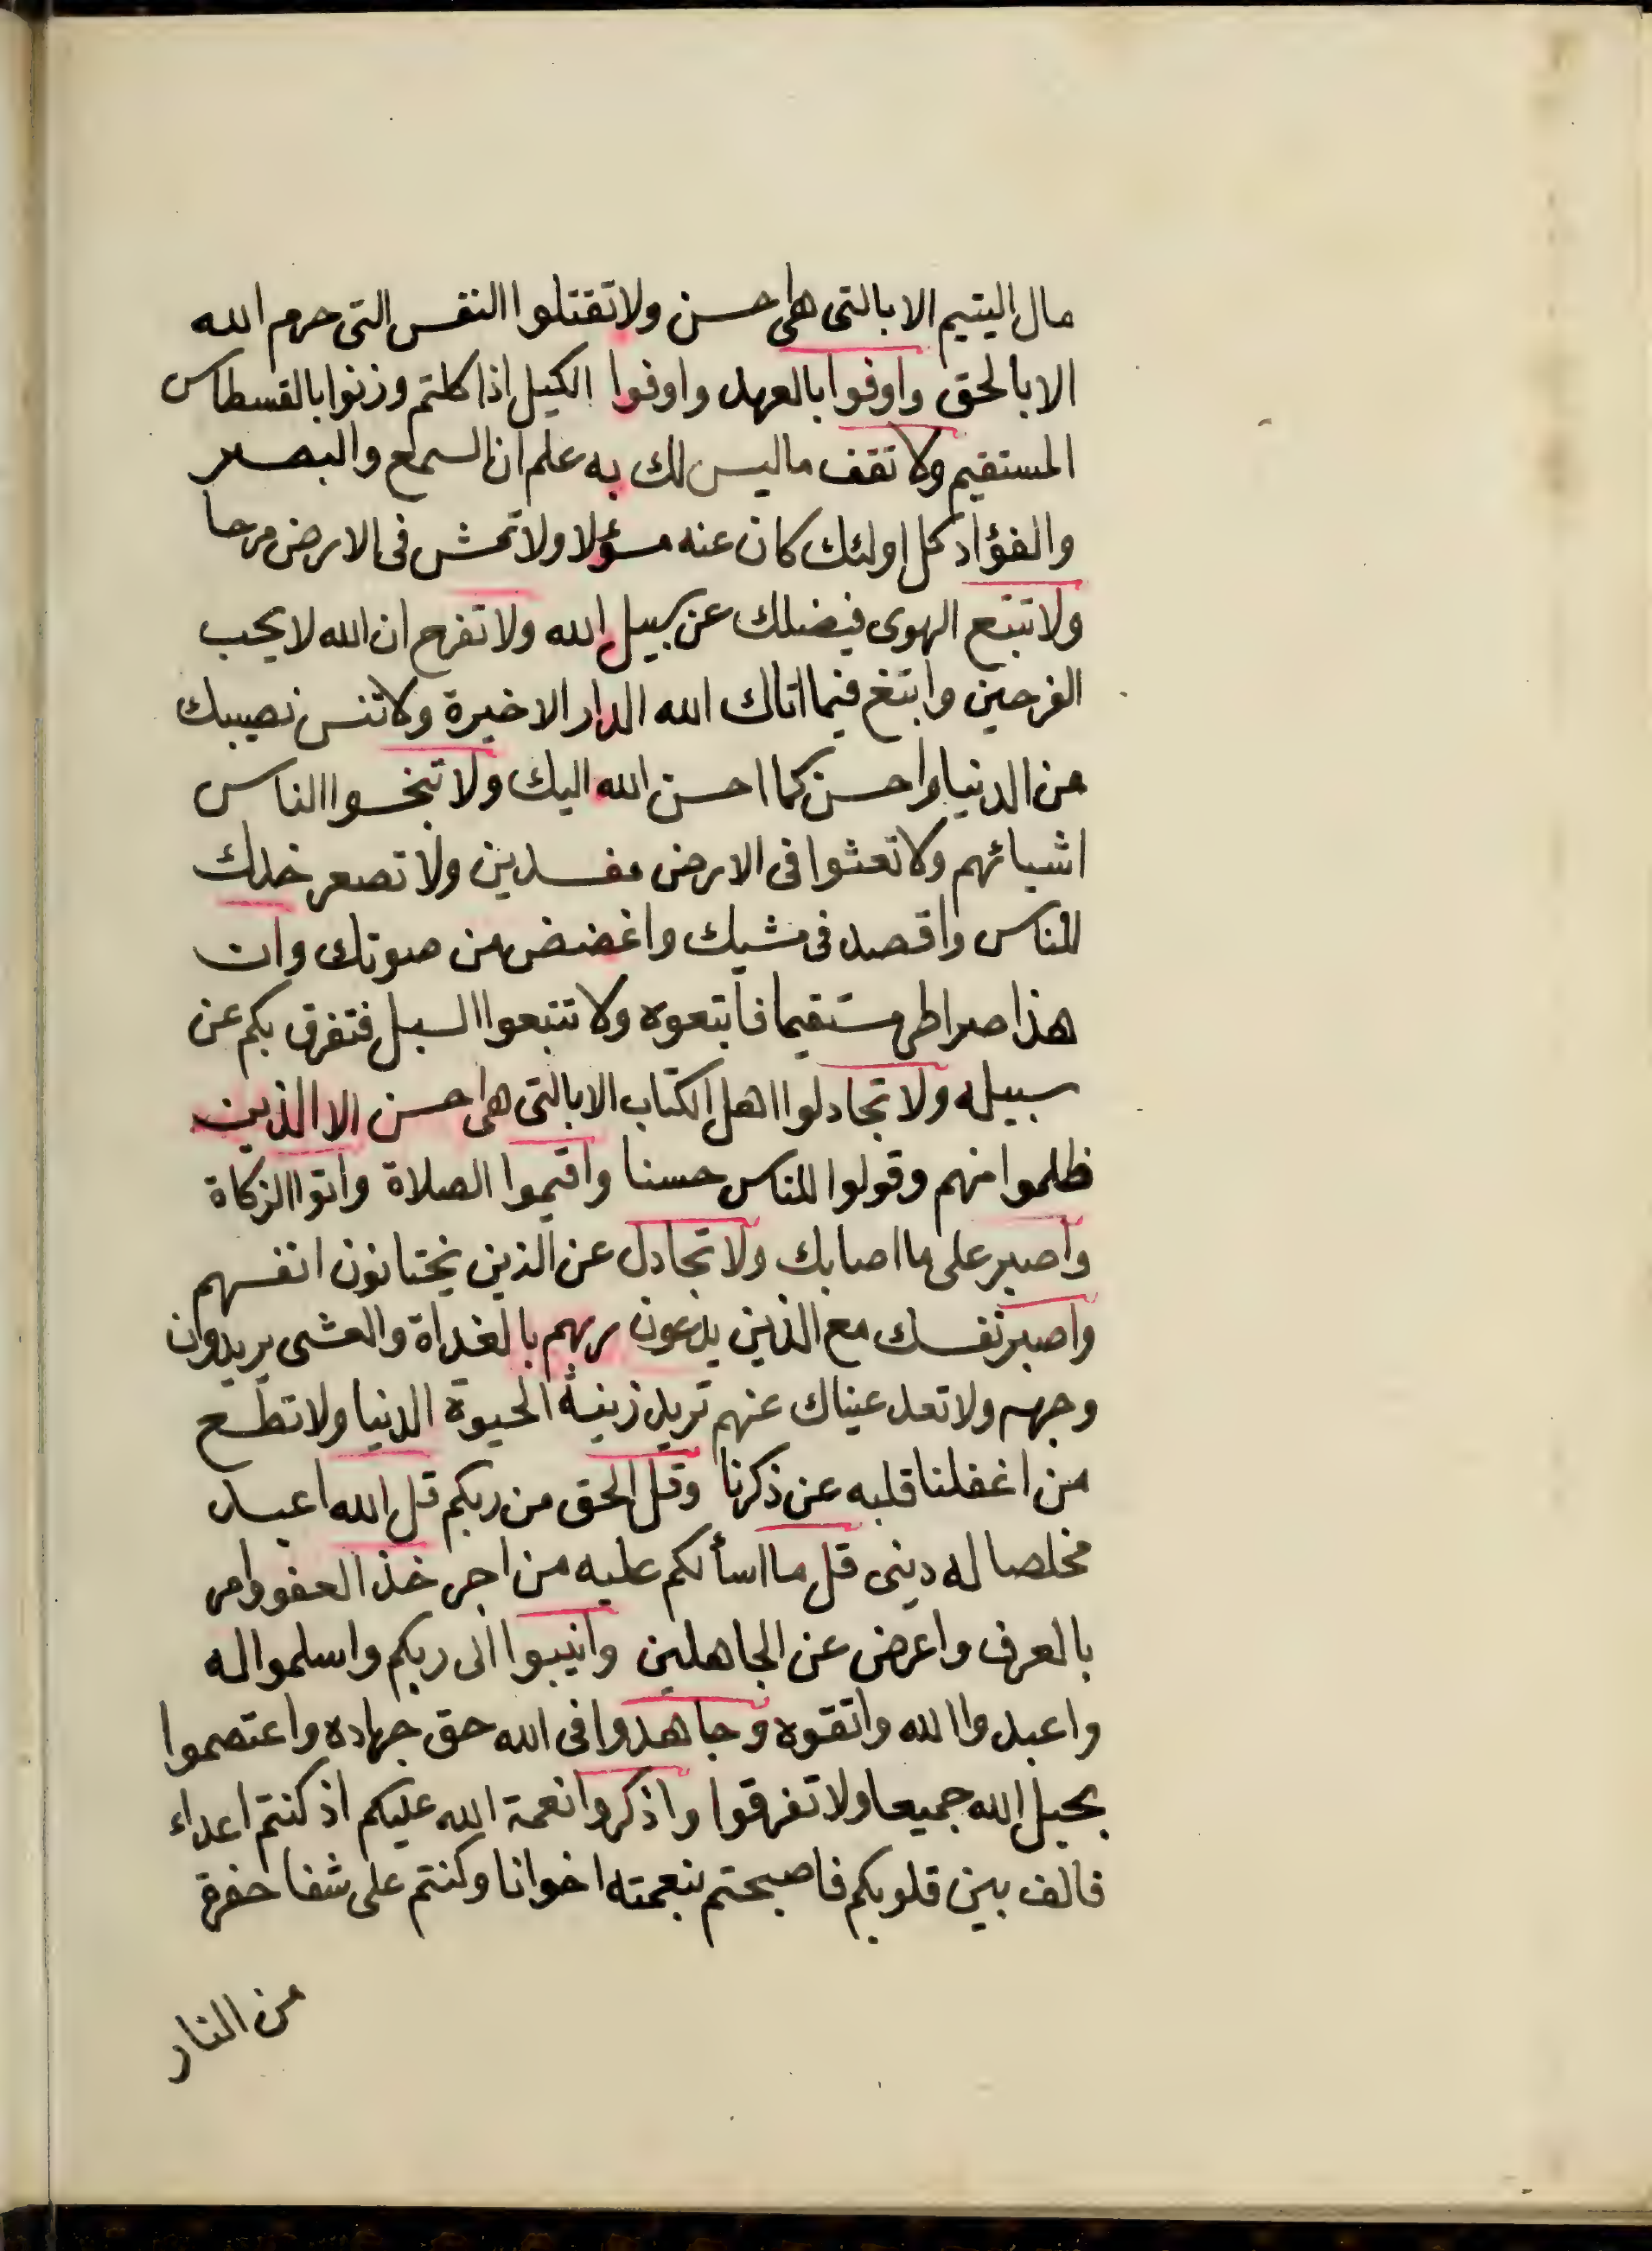 مال اليتيم الا بالتى هى احسن ولا تقتلوا النفس التى حرم الله
الا بالحق واوفوا بالعهد واوفوا الكيل اذا كلتم وزنوا بالقسطاس
المستقيم ولا تقف ما ليس لك به علم ان السمع والبصر
والفؤاد كل اولئك كان عنه مسؤلا ولا تمش فى الارض مرحا
ولا تتبع الهوى فيضلك عن سبيل الله ولا تفرح ان الله لا يحب
الفرحين وابتغ فيما اتاك الله الدار الاخيرة ولا تنس نصيبك
من الدنيا واحسن كما احسن الله اليك ولا تبخسوا الناس
اشيائهم ولا تعثوا فى الارض مفسدين ولا تصعر خدك
للناس واقصد فى مشيك واغضض من صوتك وان
هذا صراطى مستقيما فاتبعوه ولا تتبعوا السبل فتفرق بكم عن
سبيله ولا تجادلوا اهل الكتاب الا بالتى هى احسن الا الذين
ظلموا منهم وقولوا للناس حسنا واقيموا الصلاة واتوا الزكاة
واصبر على ما اصابك ولا تجادل عن الذين يختانون انفسهم
واصبر نفسك مع الذين يدعون ربهم بالغداة والعشى يريدون
وجهه ولا تعد عيناك عنهم تريد زينة الحيوة الدنيا ولا تطع
من اغفلنا قلبه عن ذكرنا وقل الحق من ربكم قل الله اعبد
مخلصا له دينى قل ما اسألكم عليه من اجر خذ العفو وامر
بالعرف واعرض عن الجاهلين وانيبوا الى ربكم واسلموا له
واعبدوا الله واتقوه وجاهدوا فى الله حق جهاده واعتصموا
بحبل الله جميعا ولا تفرقوا واذكروا نعمة الله عليكم اذ كنتم اعداء
فالف بين قلوبكم فاصبحتم بنعمته اخوانا وكنتم على شفا حفرة
من النار